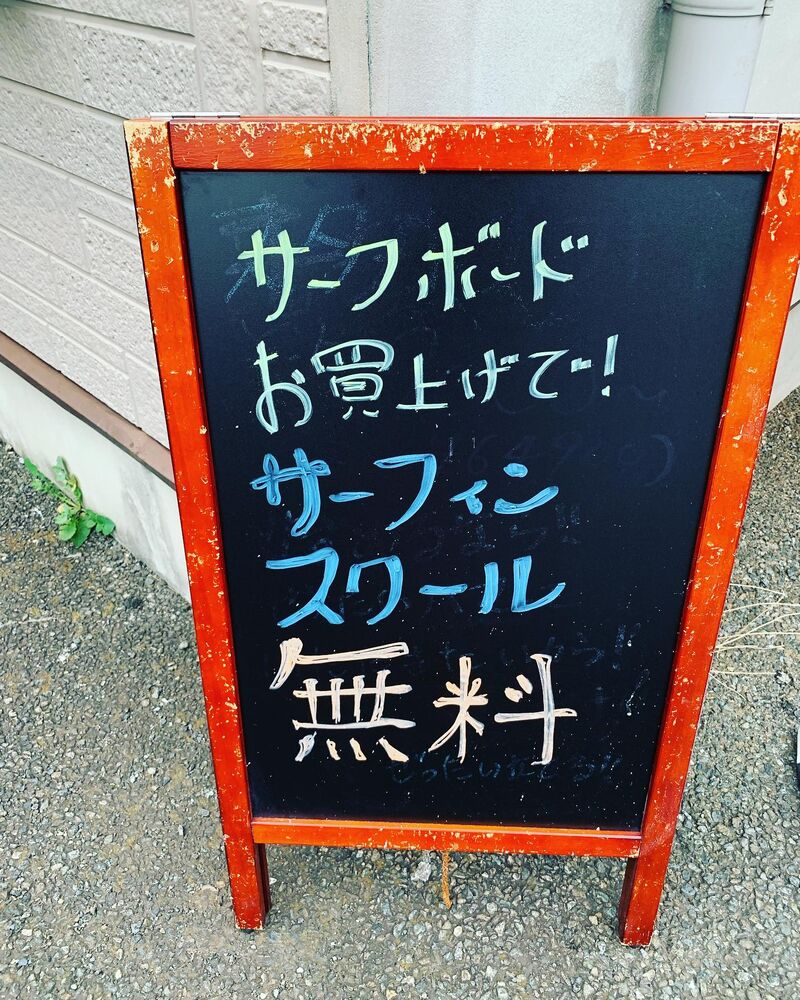 サーフボード
お買上げで!
サーフィン
スクール
無料